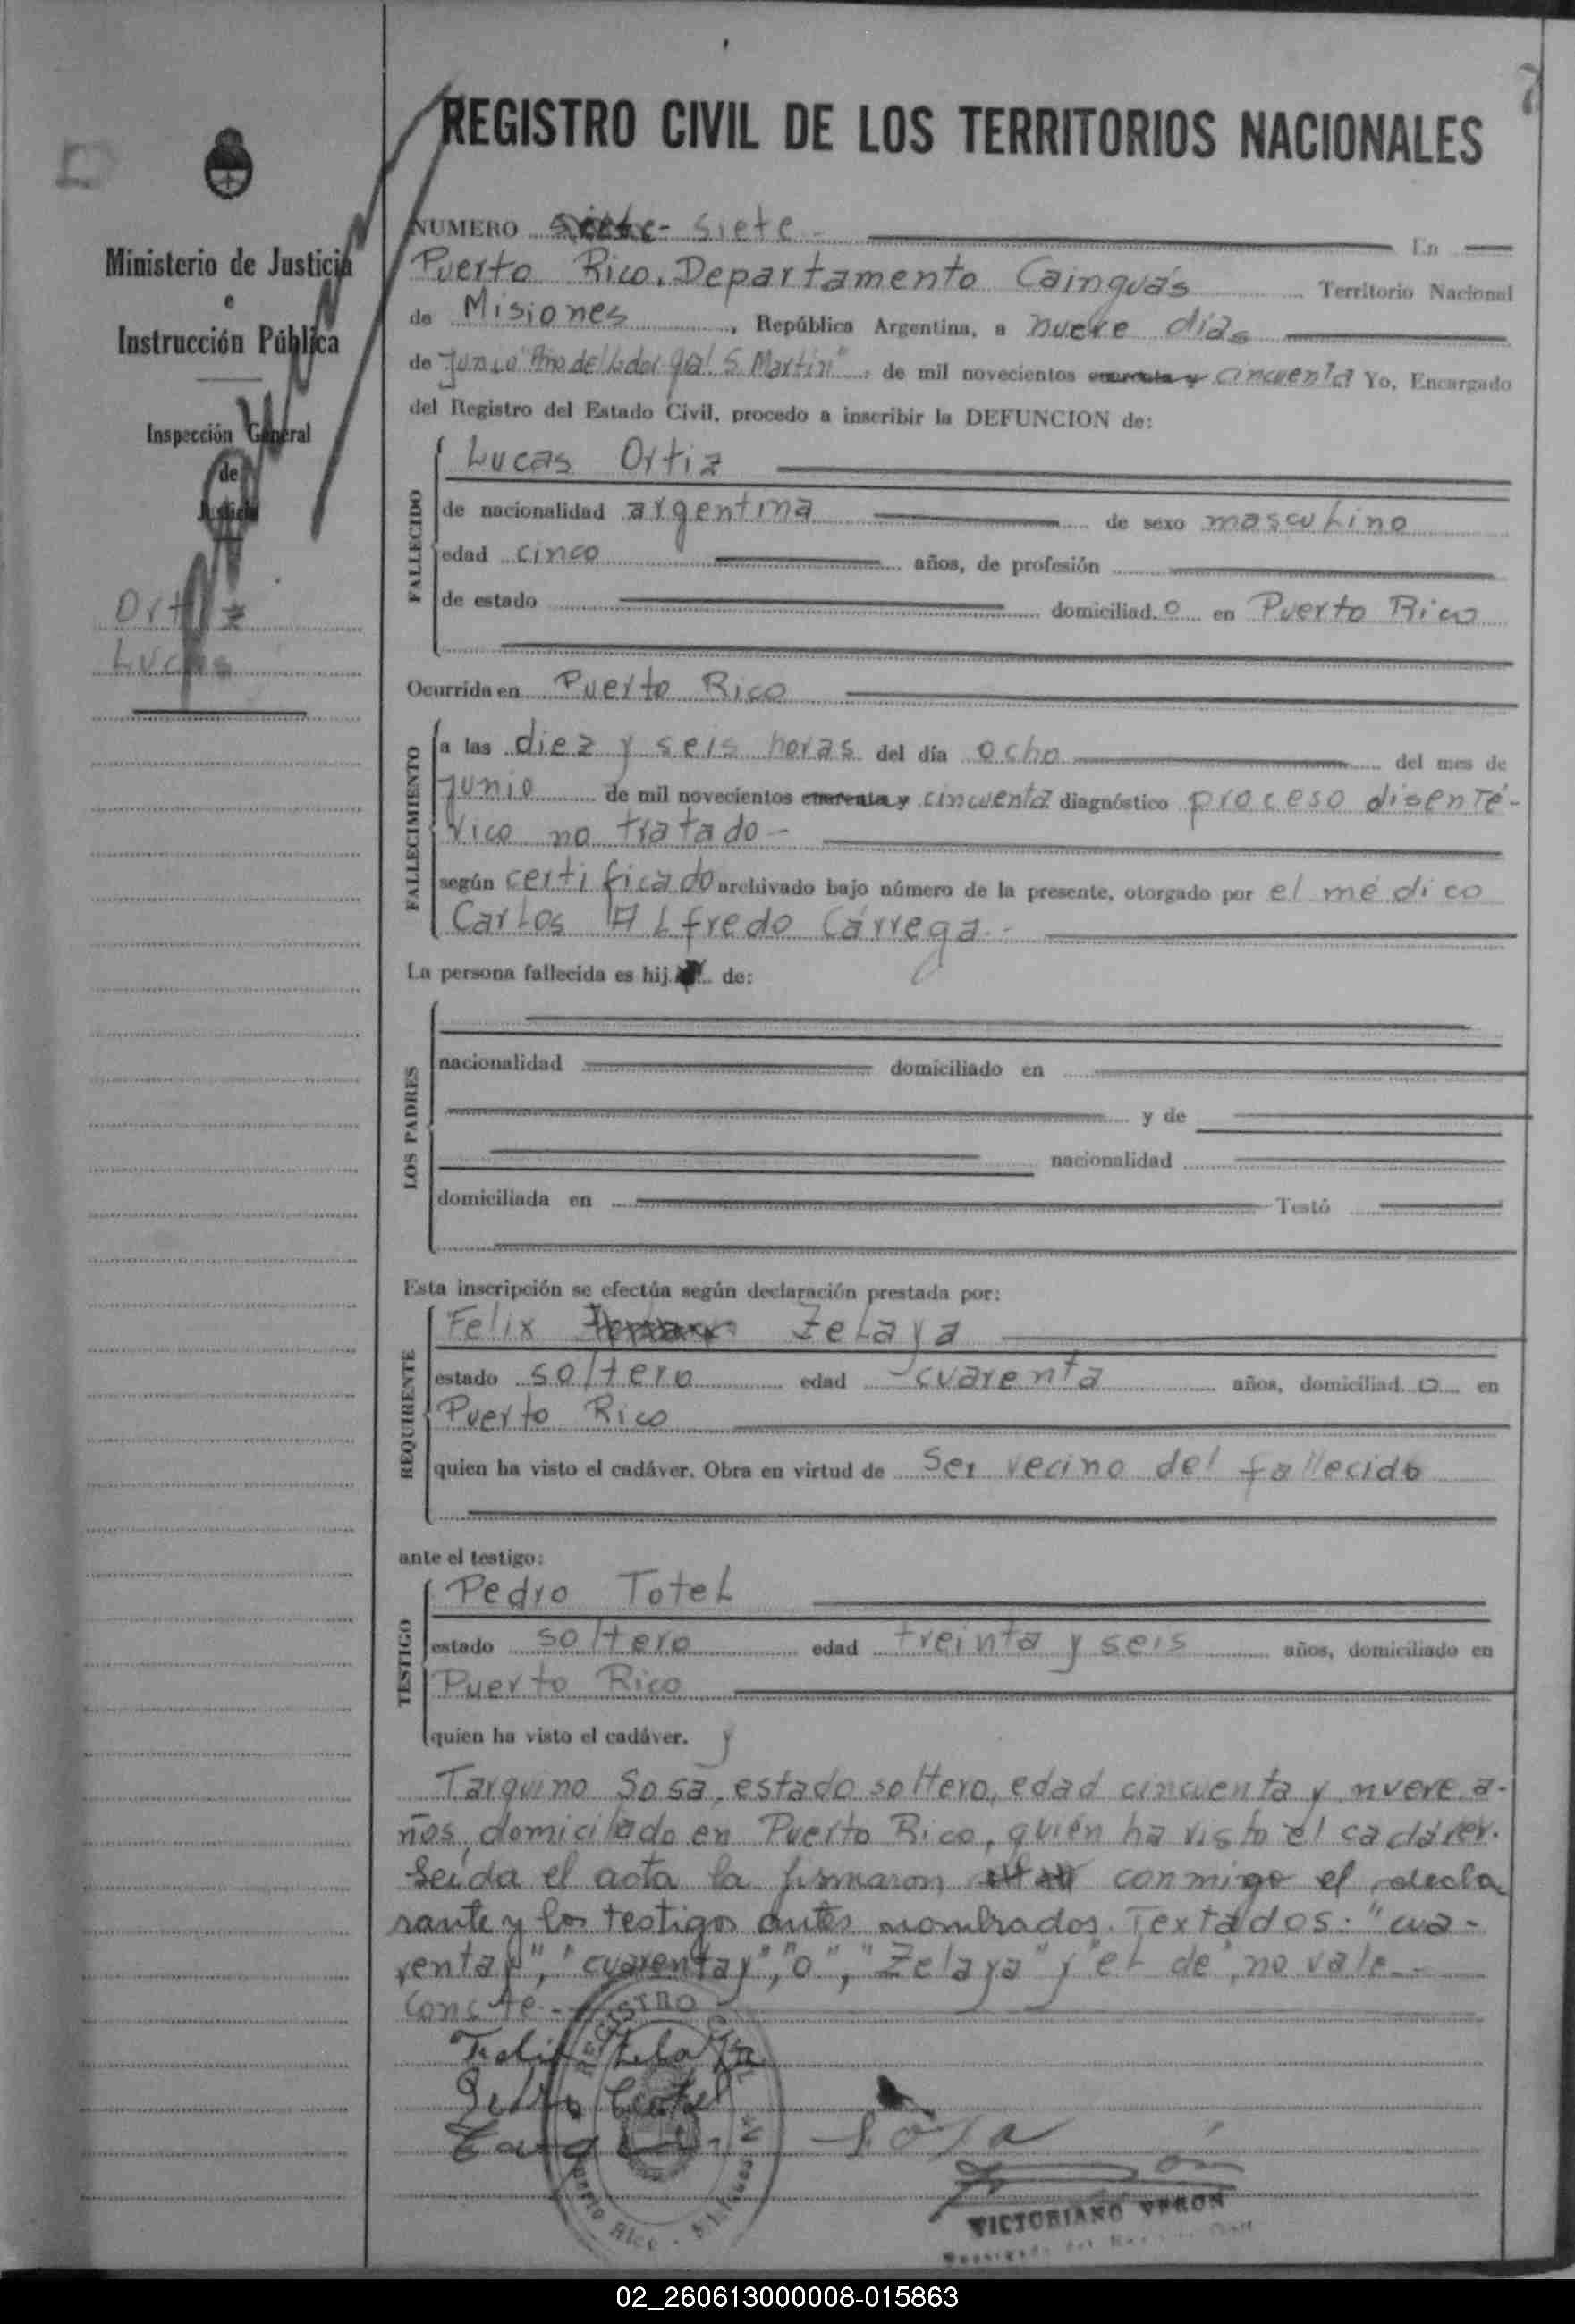 REGISTRO CIVIL DE LOS TERRITORIOS NACIONALES
7
Ministerio de Justicia
e
Instrucción Pública
Inspección General
de
Justicia
Ortiz
Lucas
NUMERO siete - siete - En
Puerto Rico, Departamento Cainguás Territorio Nacional
de Misiones, República Argentina, a nueve días
de Junio "Año del Lbdor. Gral. S. Martín", de mil novecientos cuarenta y cincuenta Yo, Encargado
del Registro del Estado Civil, procedo a inscribir la DEFUNCION de:
FALLECIDO
Lucas Ortiz
de nacionalidad argentina de sexo masculino
edad cinco años, de profesión
de estado domiciliad.o en Puerto Rico
Ocurrida en Puerto Rico
FALLECIMIENTO
a las diez y seis horas del día ocho del mes de
junio de mil novecientos cuarenta y cincuenta diagnóstico proceso disenté-
rico no tratado -
según certificado archivado bajo número de la presente, otorgado por el médico
Carlos Alfredo Cárrega -
La persona fallecida es hij de:
LOS PADRES
nacionalidad domiciliado en
y de
nacionalidad
domiciliada en Testó
Esta inscripción se efectúa según declaración prestada por:
REQUIRENTE
Felix Zelaya
estado soltero edad cuarenta años, domiciliad o en
Puerto Rico
quien ha visto el cadáver. Obra en virtud de Ser vecino del fallecido
ante el testigo:
TESTIGO
Pedro Totel
estado soltero edad treinta y seis años, domiciliado en
Puerto Rico
quien ha visto el cadáver. y
Tarquino Sosa, estado soltero, edad cincuenta y nueve a-
ños, domiciliado en Puerto Rico, quién ha visto el cadáver.
Leída el acta la firmaron conmigo el decla
rante y los testigos antes nombrados. Textados: "cua-
renta y", "cuarenta y", "o", "Zelaya" y "el de", no vale -
Concte. -
Felix Zelaya
Pedro Totel
Sosa
REGISTRO CIVIL
Puerto Rico - Misiones
VICTORIANO VERON
Encargado del Registro Civil
02_260613000008-015863